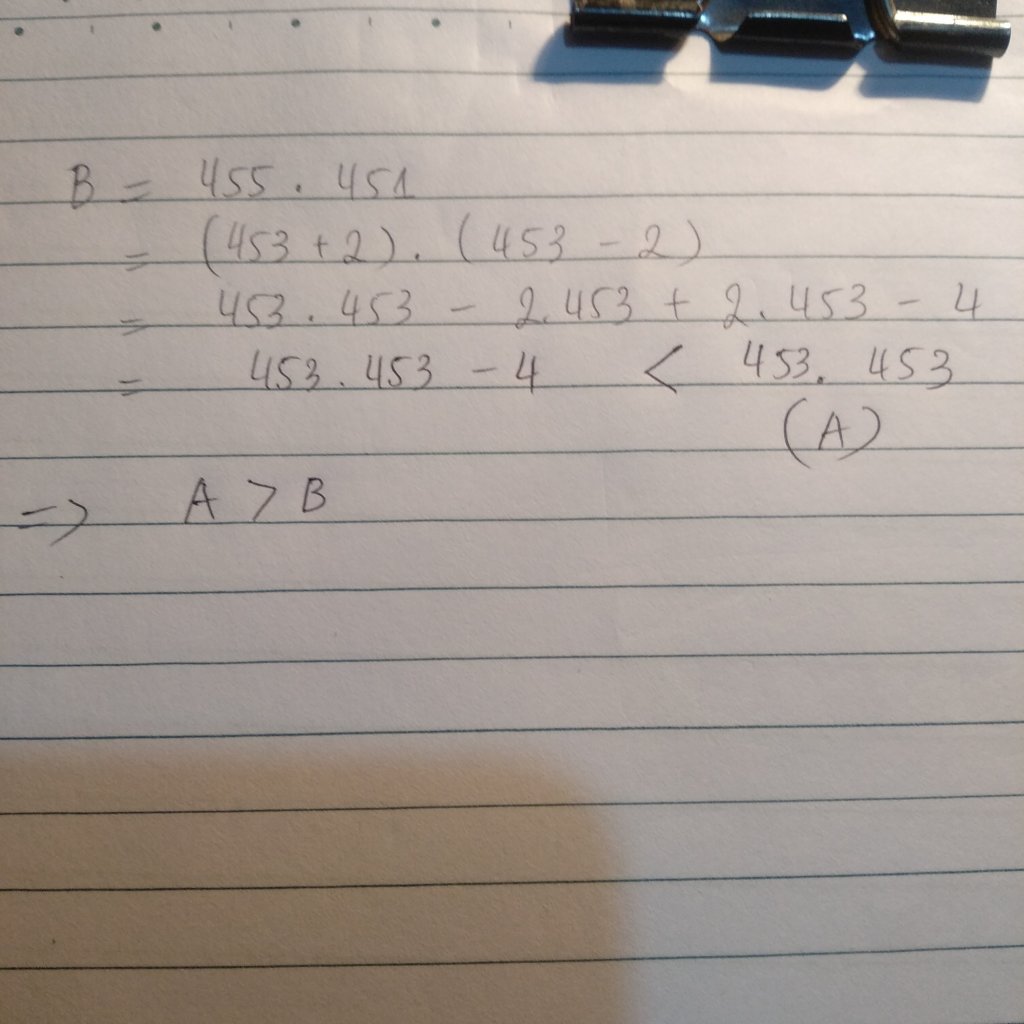 B = 455 . 451
= (453 + 2) . (453 - 2)
= 453 . 453 - 2.453 + 2.453 - 4
= 453 . 453 - 4 < 453 . 453
(A)
=> A > B